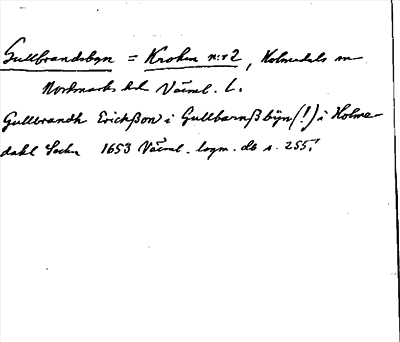 Gullbrandsbyn = Kroken n:r 2, Holmedals sn
Nordmarks hd Värml. L.
Gullbrandh Erickßon i Gullbarnß bÿn (!) i Holme-
dahl Sockn 1653 Värml. lagm. db s. 255.